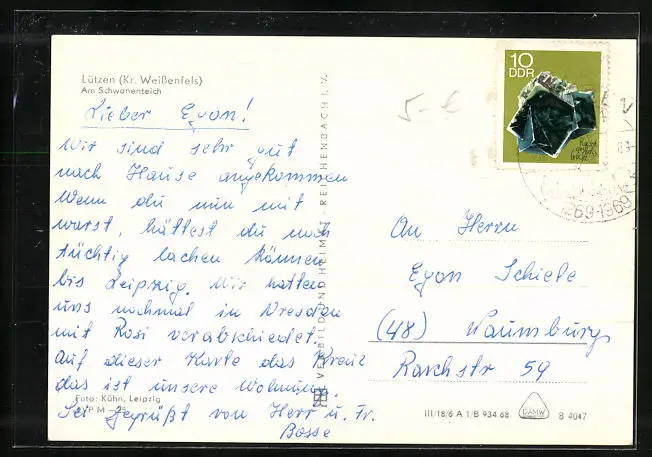 Lützen (Kr. Weißenfels)
Am Schwanenteich
Lieber Egon!
Wir sind sehr gut
nach Hause angekommen
Wenn du nun mit
warst, hättest du noch
tüchtig lachen können
bis Leipzig. Wir hatten
uns nochmal in Dresden
mit Rosi verabschiedet.
Auf dieser Karte das Kreuz
das ist unsere Wohnung.
Sei gegrüßt von Herr u. Fr.
Bosse
Foto: Kühn, Leipzig
VERLAG BILD UND HEIMAT REICHENBACH I. V.
5-€
10
DDR
1269-1969
An Herrn
Egon Schiele
(48) Naumburg
Raschstr 59
III/18/6 A 1/B 934 68
DAMW
B 4047